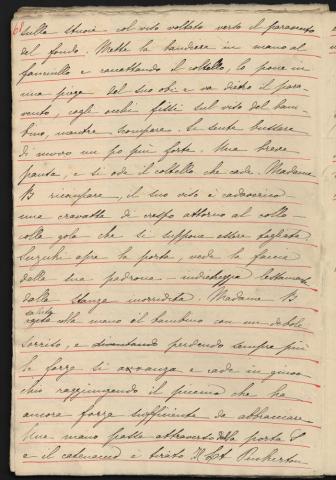 61
sulla stuoia col viso voltato verso il paravento
del fondo. Mette la bandiera in mano al
fanciullo e raccattando il coltello, lo pone in
una piega del suo obi e va dietro il para
vento, cogli occhi fissi sul viso del bam-
bino, mentre scompare. Si sente bussare
di nuovo un po più forte. Una breve
pausa, e si ode il coltello che cade. Madame
B ricompare, il suo viso è cadaverico
una cravatta di crespo attorno al collo -
colla gola che si suppone essere tagliata
Suzuki apre la porta, vede la faccia
della sua padrona - indietreggia lentamente
dalla stanza inorridita. Madame B
saluta
colla mano il bambino con un debole
sorriso, e diventando perdendo sempre più
le forze si avvanza e cade in ginoc
chio raggiungendo il piccino che ha
ancora forza sufficiente da abbracciare
Una mano passa attraverso della porta
e il catenaccio è tirato Il Lt Pinkerton